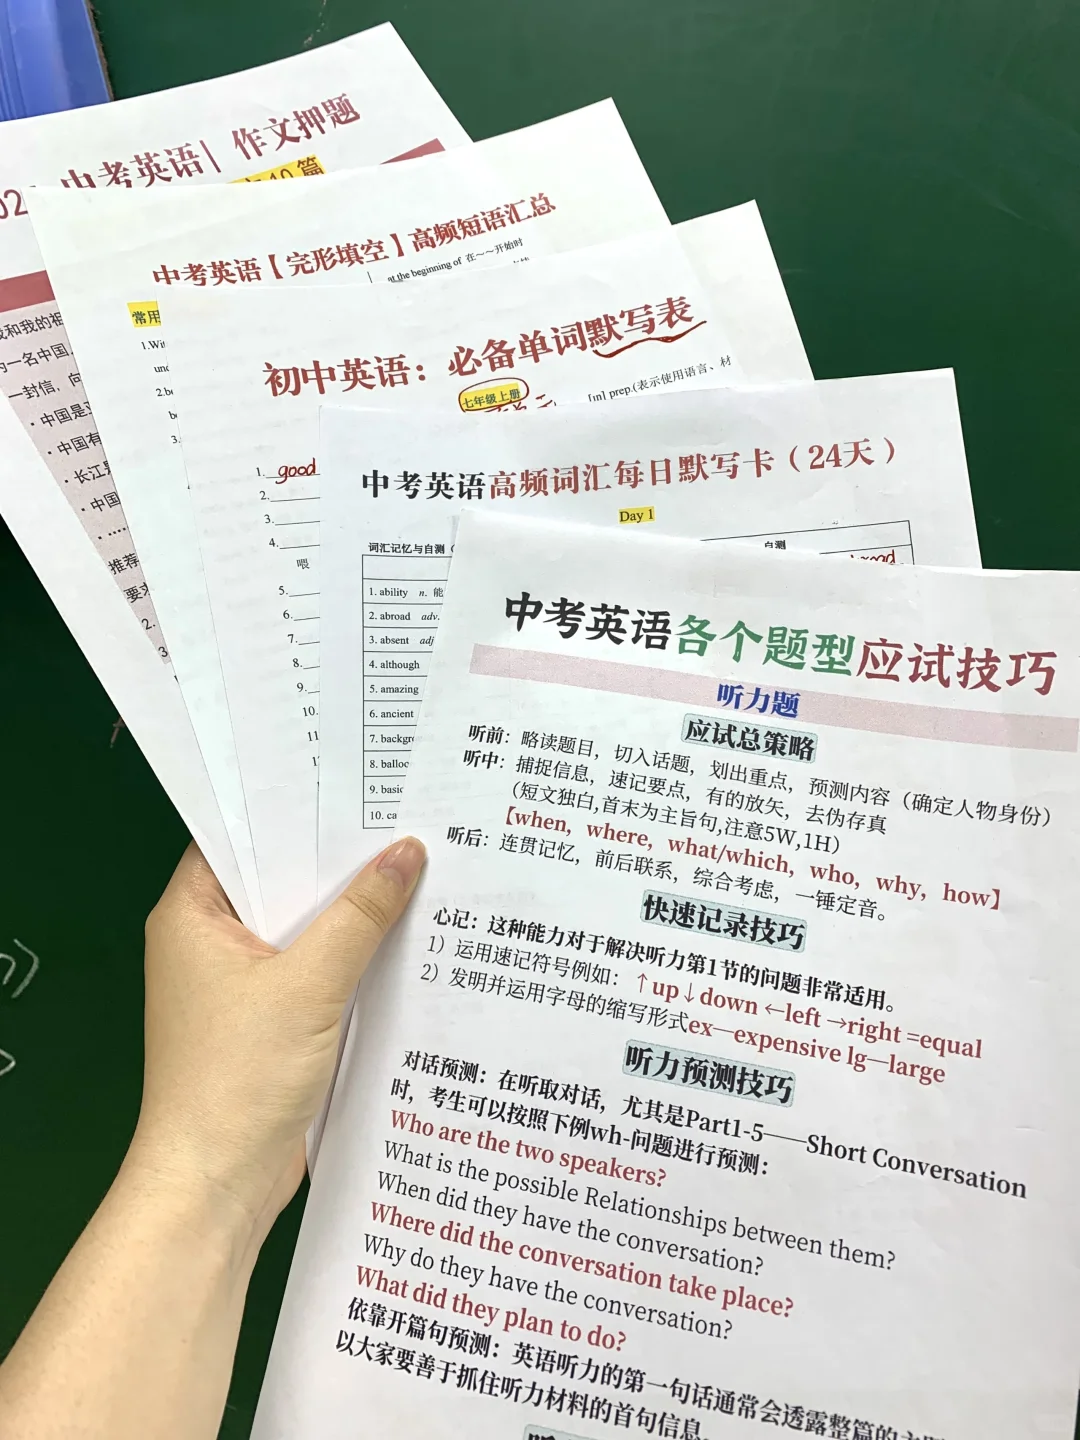 中考英语| 作文押题
10篇
我和我的祖
一名中国
一封信，向
·中国是
·中国有
·长江
·中国
·.....
推荐
要求
2.
3
中考英语【完形填空】高频短语汇总
常用
at the beginning of 在～～开始时
1.Wi
und
2.b
b
3.
初中英语：必备单词默写表
七年级上册
[ɪn] prep.(表示使用语言、材
1. good
2.
3.
4.
喂
5.
6.
7.
8.
9.
10.
11
中考英语高频词汇每日默写卡（24天）
Day 1
词汇记忆与自测（
自测
1. ability n. 能
2. abroad adv.
3. absent adj
4. although
5. amazing
6. ancient
7. backgr
8. balloc
9. basic
10. ca
中考英语各个题型应试技巧
听力题
应试总策略
听前：略读题目，切入话题，划出重点，预测内容（确定人物身份）
听中：捕捉信息，速记要点，有的放矢，去伪存真
（短文独白,首末为主旨句,注意5W,1H）
【when，where，what/which，who，why，how】
听后：连贯记忆，前后联系，综合考虑，一锤定音。
快速记录技巧
心记：这种能力对于解决听力第1节的问题非常适用。
1）运用速记符号例如：↑up↓down ←left →right =equal
2）发明并运用字母的缩写形式ex—expensive lg—large
听力预测技巧
对话预测：在听取对话，尤其是Part1-5——Short Conversation
时，考生可以按照下例wh-问题进行预测：
Who are the two speakers?
What is the possible Relationships between them?
When did they have the conversation?
Where did the conversation take place?
Why do they have the conversation?
What did they plan to do?
依靠开篇句预测：英语听力的第一句话通常会透露整篇的主题
以大家要善于抓住听力材料的首句信息。